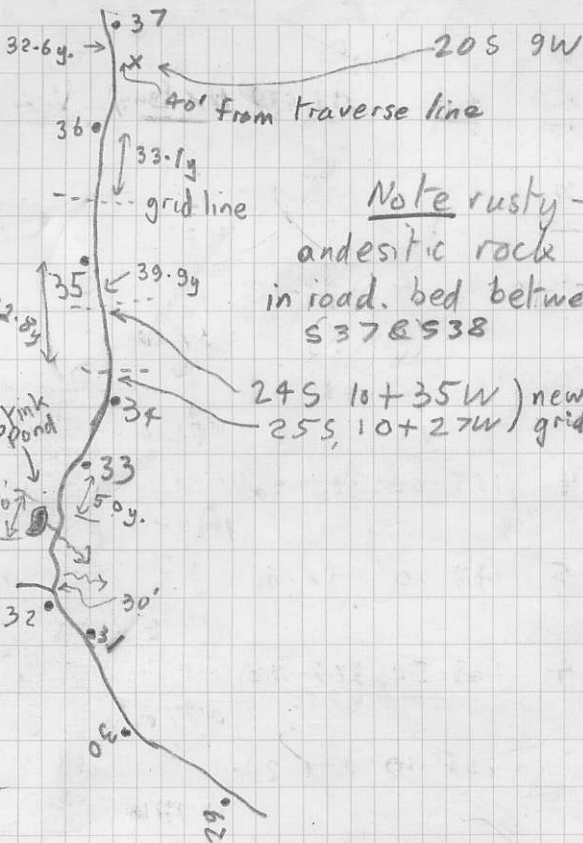 37
32.6y.
20S 9W
40' from traverse line
36
33.1y
grid line
Note rusty-
andesitic rock
in road. bed betwe
S37&S38
35
39.9y
2.8y
24S 10+35W ) new
25S, 10+27W ) grid
34
ink
pond
33
50y.
30'
32
31
30
29